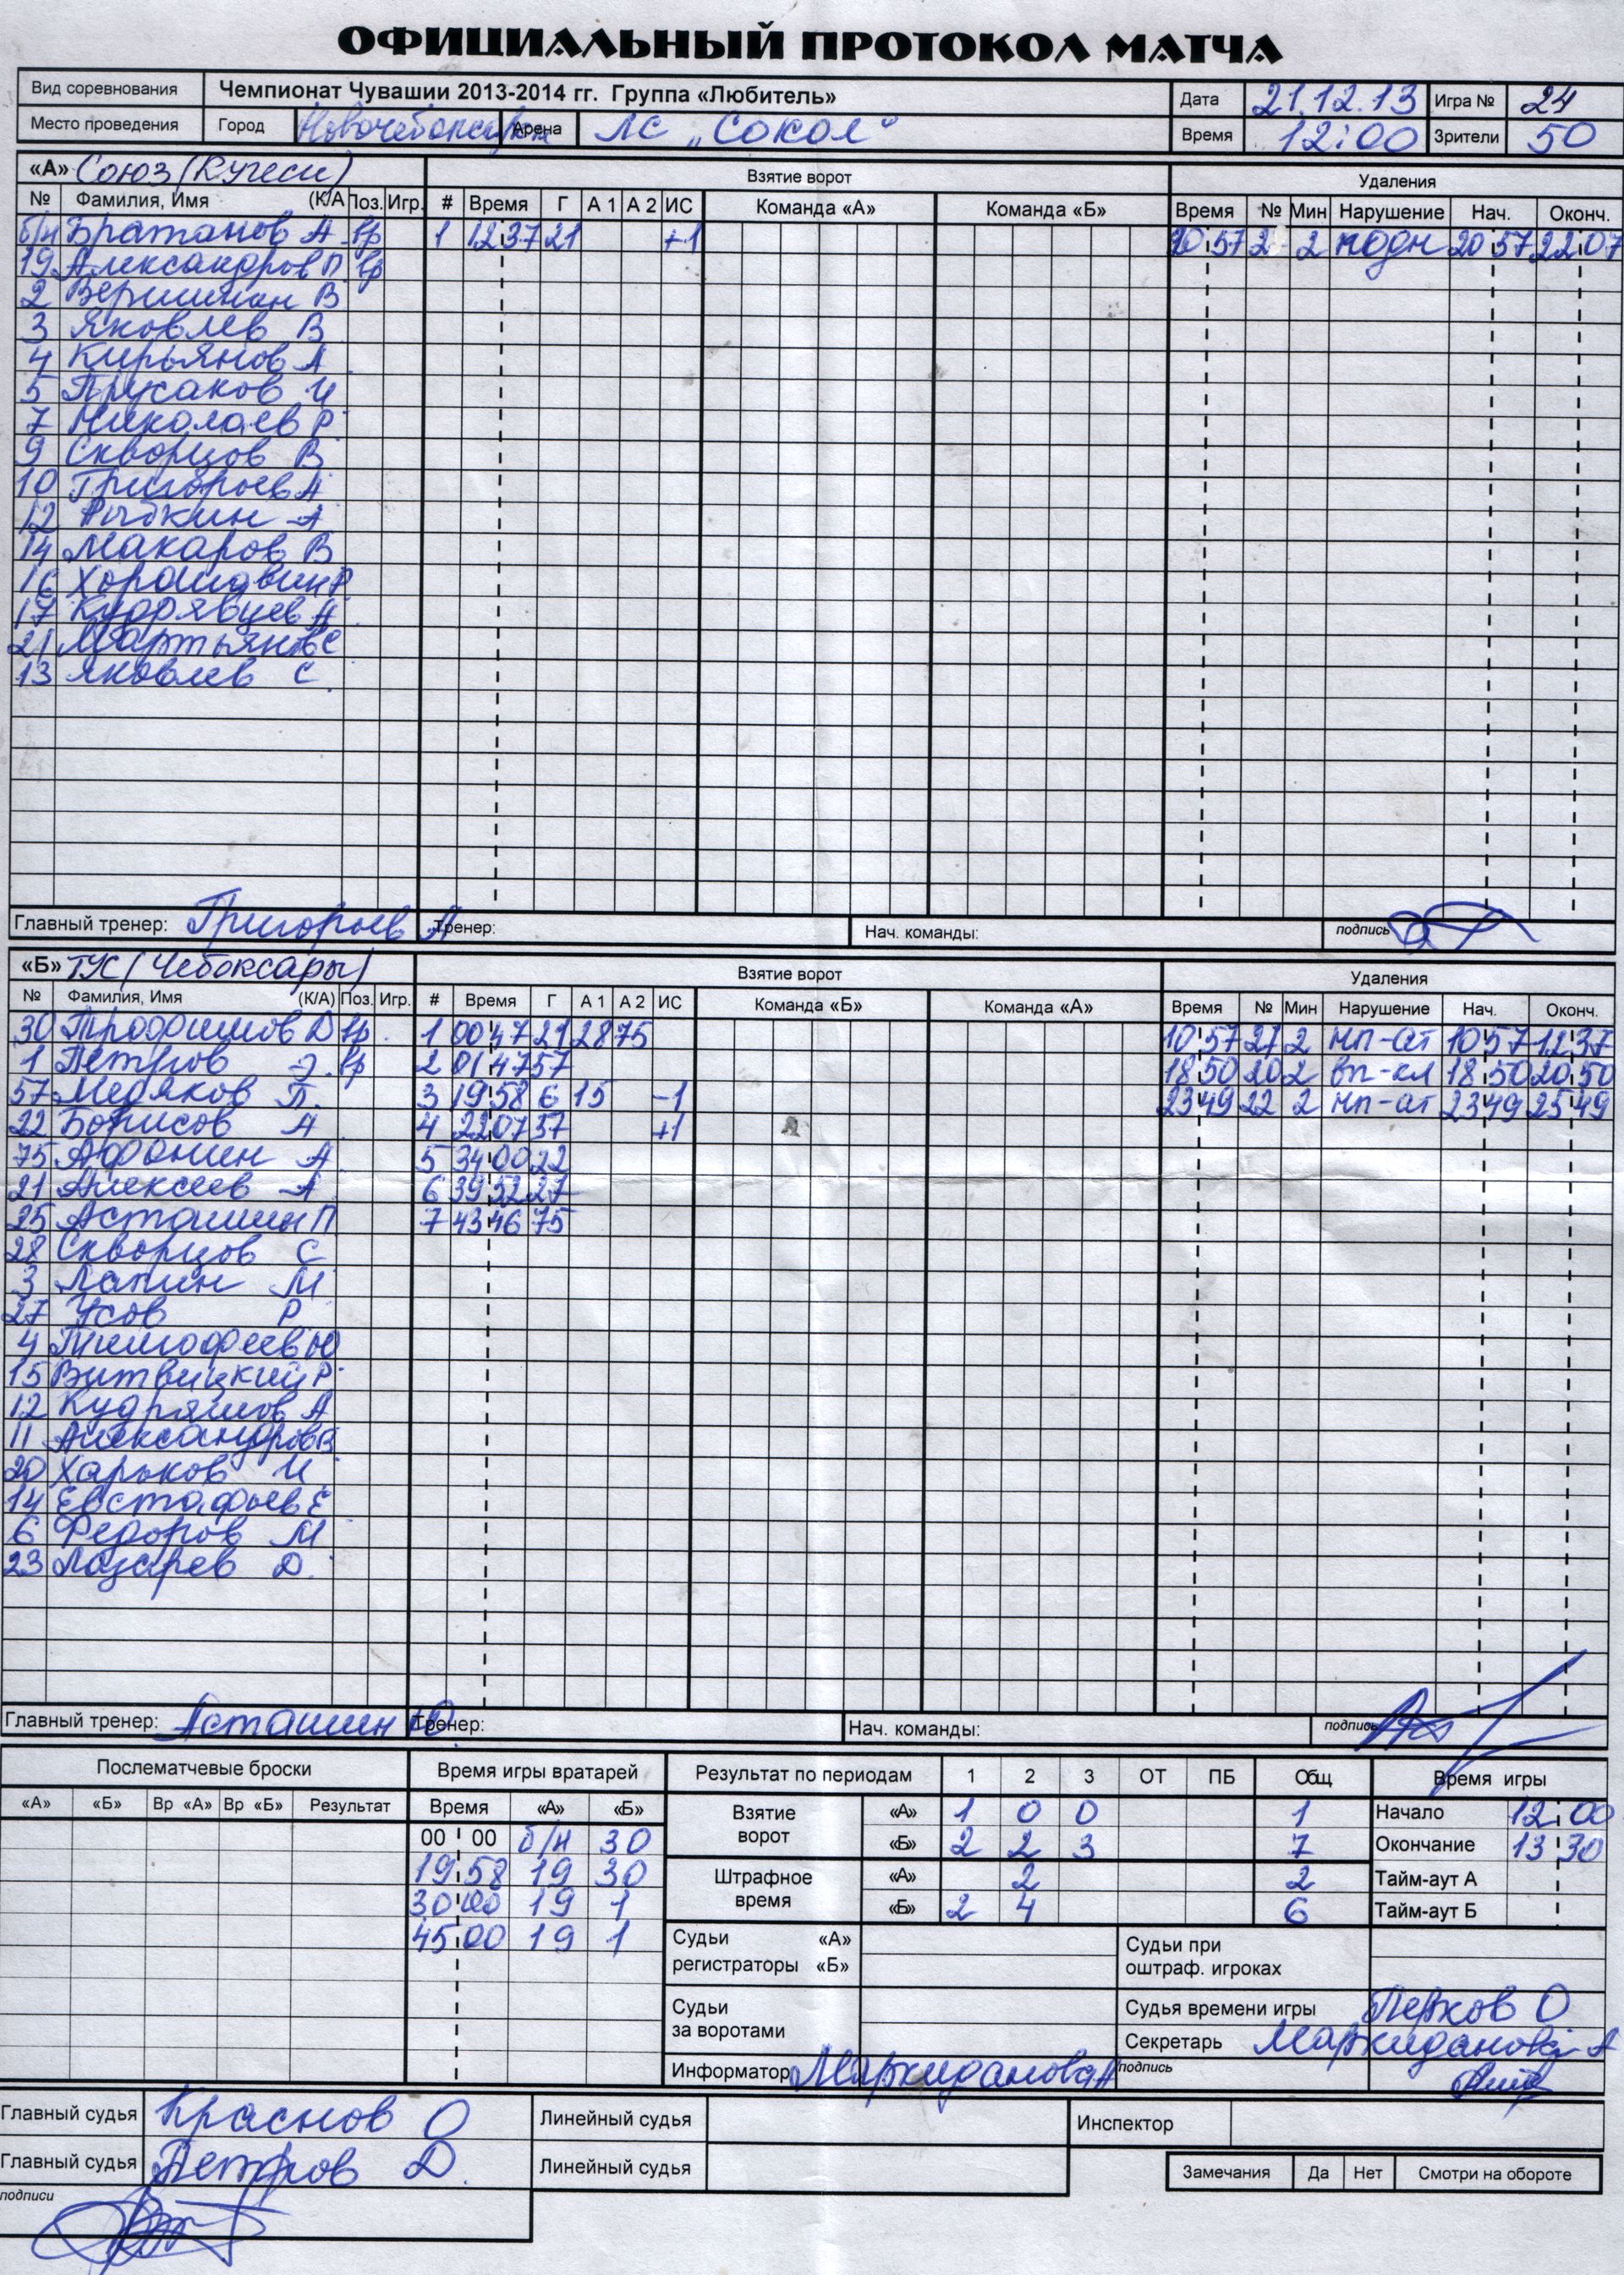 ОФИЦИАЛЬНЫЙ ПРОТОКОЛ МАТЧА
Вид соревнования Чемпионат Чувашии 2013-2014 гг. Группа «Любитель» Дата 21.12.13 Игра № 24
Место проведения Город Новочебоксарск Арена ЛС „Сокол“ Время 12:00 Зрители 50
«А» Союз (Кугеси) Взятие ворот Удаления
№ Фамилия, Имя (К/А Поз. Игр. # Время Г А 1 А 2 ИС Команда «А» Команда «Б» Время № Мин Нарушение Нач. Оконч.
б/н Братанов А вр 1 12 37 21 +1 20 57 2 2 подн 20 57 22 07
19 Александров П вр
2 Вершинин В
3 Яковлев В
4 Кирьянов А
5 Прусаков И
7 Николаев Р
9 Скворцов В
10 Григорьев А
12 Рыбкин А
14 Макаров В
16 Хорашавин Р
17 Кудрявцев А
21 Мартьянов С
13 Яковлев С.
Главный тренер: Григорьев А Тренер: Нач. команды: подпись
«Б» ТУС (Чебоксары) Взятие ворот Удаления
№ Фамилия, Имя (К/А) Поз. Игр. # Время Г А 1 А 2 ИС Команда «Б» Команда «А» Время № Мин Нарушение Нач. Оконч.
30 Трофимов Д вр 1 00 47 21 28 75 10 57 27 2 нп-ат 10 57 12 37
1 Петров Э. вр 2 01 47 57 18 50 20 2 вп-кл 18 50 20 50
57 Медяков П. 3 19 58 6 15 -1 23 49 22 2 нп-ат 23 49 25 49
22 Борисов А 4 22 07 37 +1
75 Афонин А 5 34 00 22
21 Алексеев А 6 39 52 27
25 Асташин П 7 43 46 75
28 Скворцов С
3 Лапин М
27 Усов Р
4 Тимофеев Ю
15 Витвицкий Р
12 Кудряшов А
11 Александров В
20 Харьков И
14 Евстафьев Е
6 Федоров М
23 Лазарев Д.
Главный тренер: Асташин Ю. Тренер: Нач. команды: подпись
Послематчевые броски Время игры вратарей Результат по периодам 1 2 3 ОТ ПБ Общ Время игры
«А» «Б» Вр «А» Вр «Б» Результат Время «А» «Б» Взятие ворот «А» 1 0 0 1 Начало 12 00
00 00 б/н 30 «Б» 2 2 3 7 Окончание 13 30
19 58 19 30 Штрафное время «А» 2 2 Тайм-аут А
30 00 19 1 «Б» 2 4 6 Тайм-аут Б
45 00 19 1 Судьи «А» Судьи при
регистраторы «Б» оштраф. игроках
Судьи Судья времени игры Перков О
за воротами Секретарь Маркиданова А
Информатор Маркиданова А подпись
Главный судья Краснов О Линейный судья Инспектор
Главный судья Петров Д. Линейный судья Замечания Да Нет Смотри на обороте
подписи